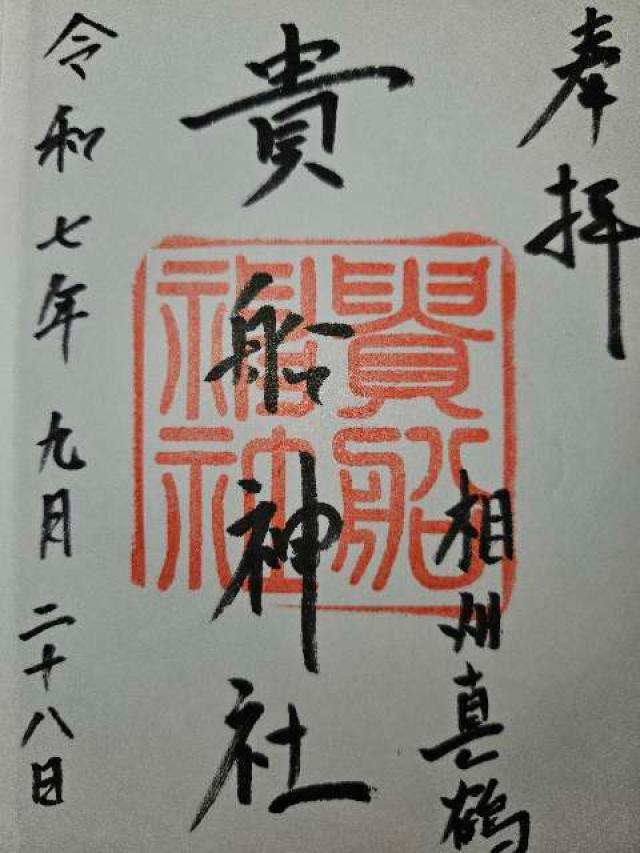 奉拝
相州真鶴
貴船神社
貴船神社
令和七年九月二十八日